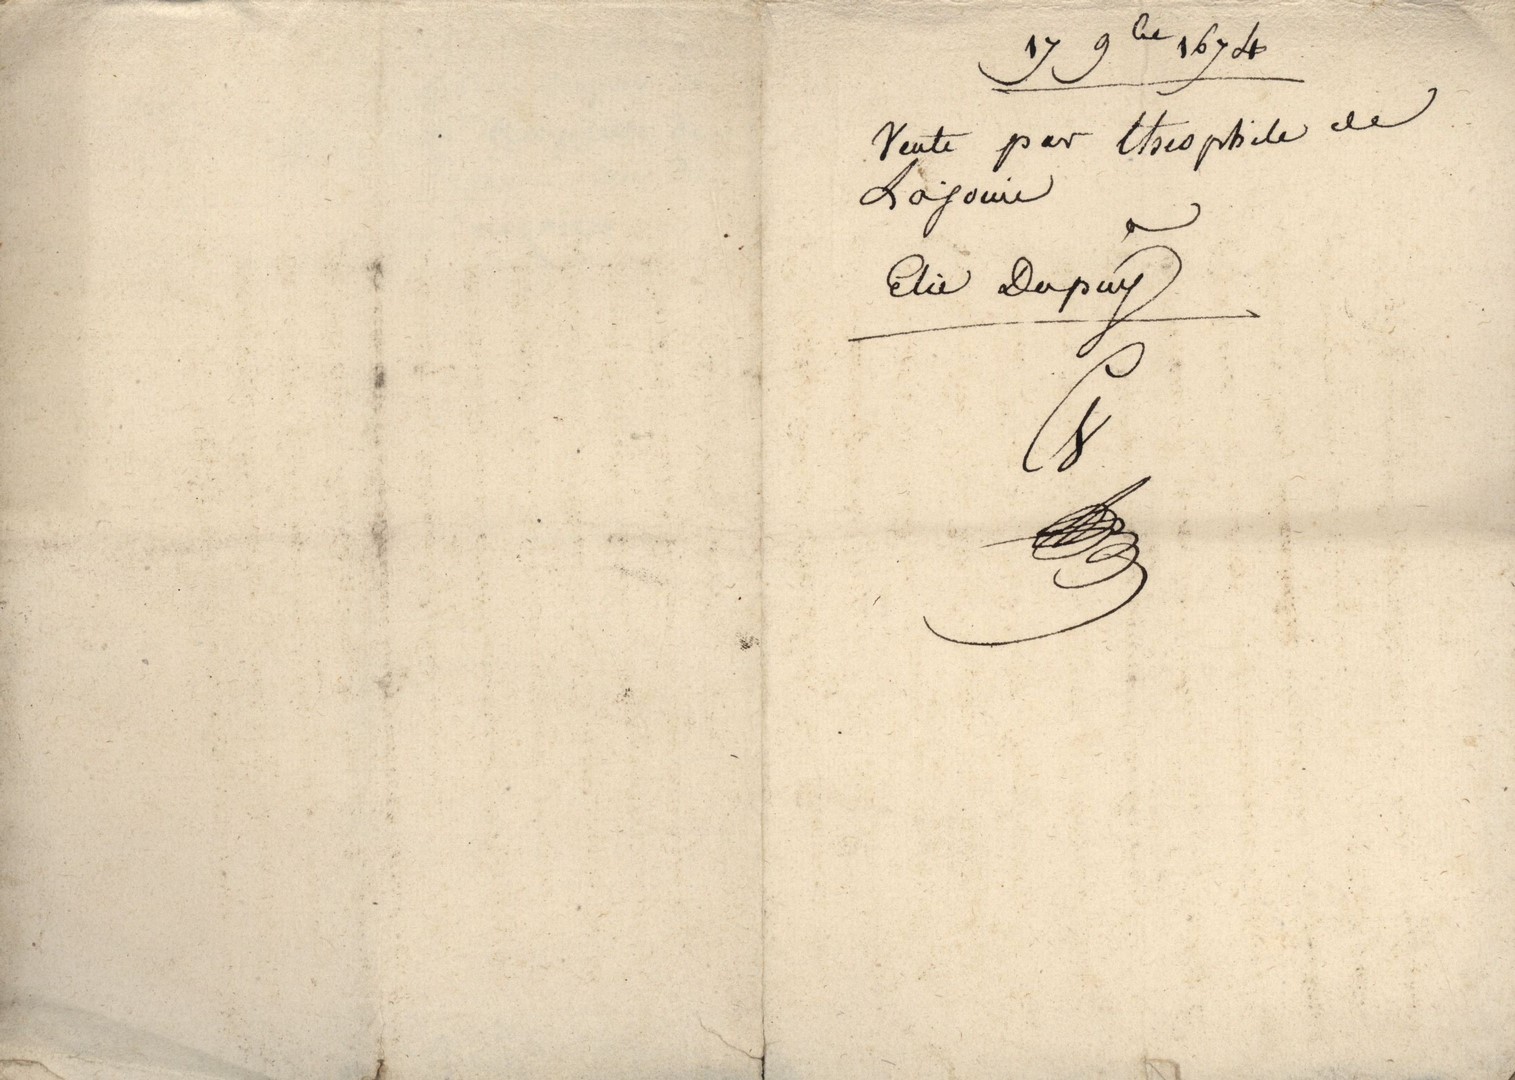 17 9bre 1674
Vente par theophile de
Lajouie
a
Elie Dupuy